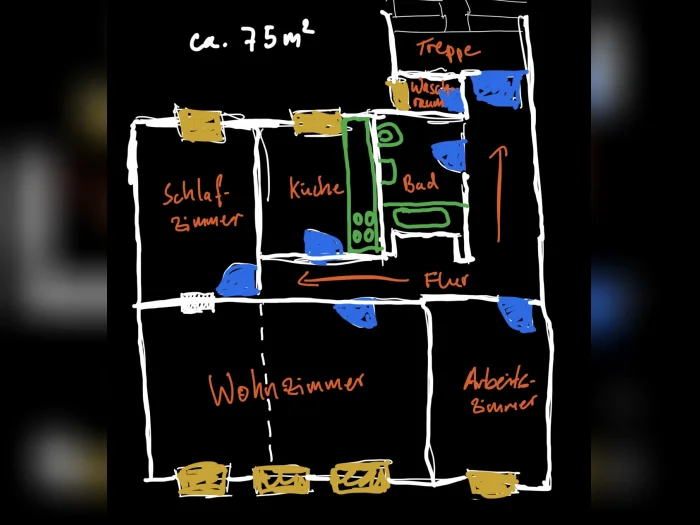 ca. 75m²
Treppe
Wasch-
raum
Schlaf-
zimmer
Küche
Bad
Flur
Wohnzimmer
Arbeits-
zimmer